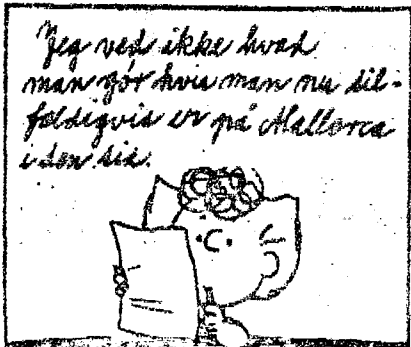 Jeg ved ikke hvad
man gør hvis man nu til-
fældigvis er på Mallorca
i den tid.